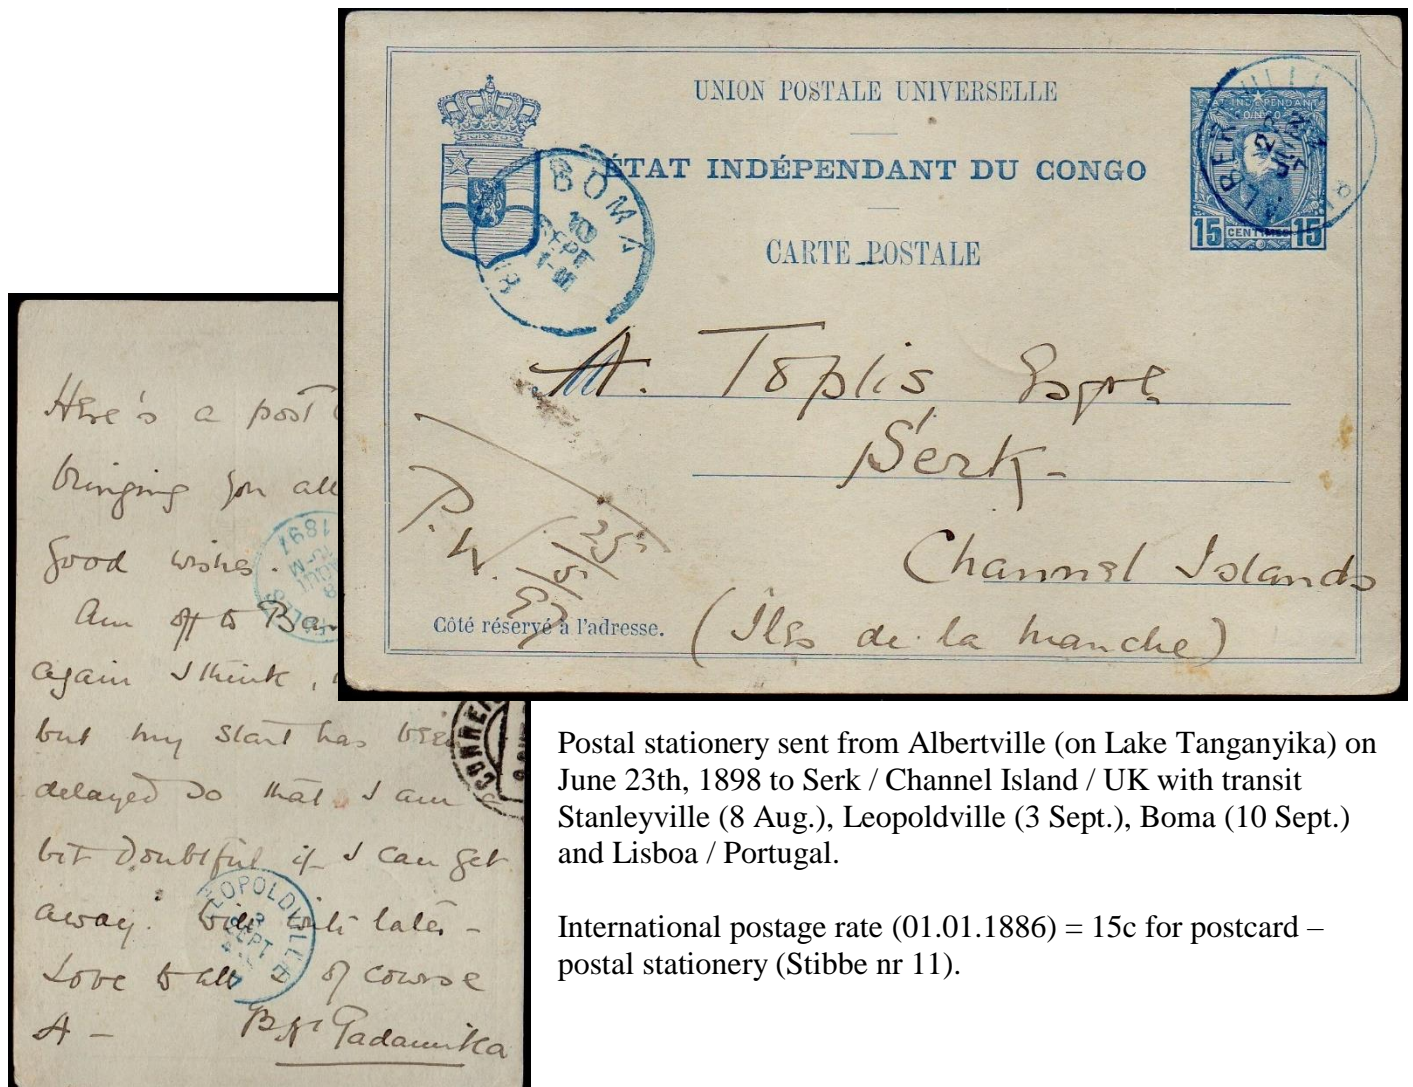 UNION POSTALE UNIVERSELLE
ÉTAT INDÉPENDANT DU CONGO
CARTE POSTALE
ETAT INDEPENDANT
CONGO
15 CENTIMES 15
BOMA
10
SEPT
A. Toplis Esqre
Serk-
Channel Islands
(Îles de la manche)
P.W.
25/5/97
Côté réservé à l'adresse.
Here's a post
bringing you all
good wishes.
Am off to
again I think,
but my start has been
delayed so that I am a
bit doubtful if I can get
away. Will write later -
Love to all of course
A -
1897
LEOPOLDVILLE
SEPT
Postal stationery sent from Albertville (on Lake Tanganyika) on
June 23th, 1898 to Serk / Channel Island / UK with transit
Stanleyville (8 Aug.), Leopoldville (3 Sept.), Boma (10 Sept.)
and Lisboa / Portugal.
International postage rate (01.01.1886) = 15c for postcard –
postal stationery (Stibbe nr 11).